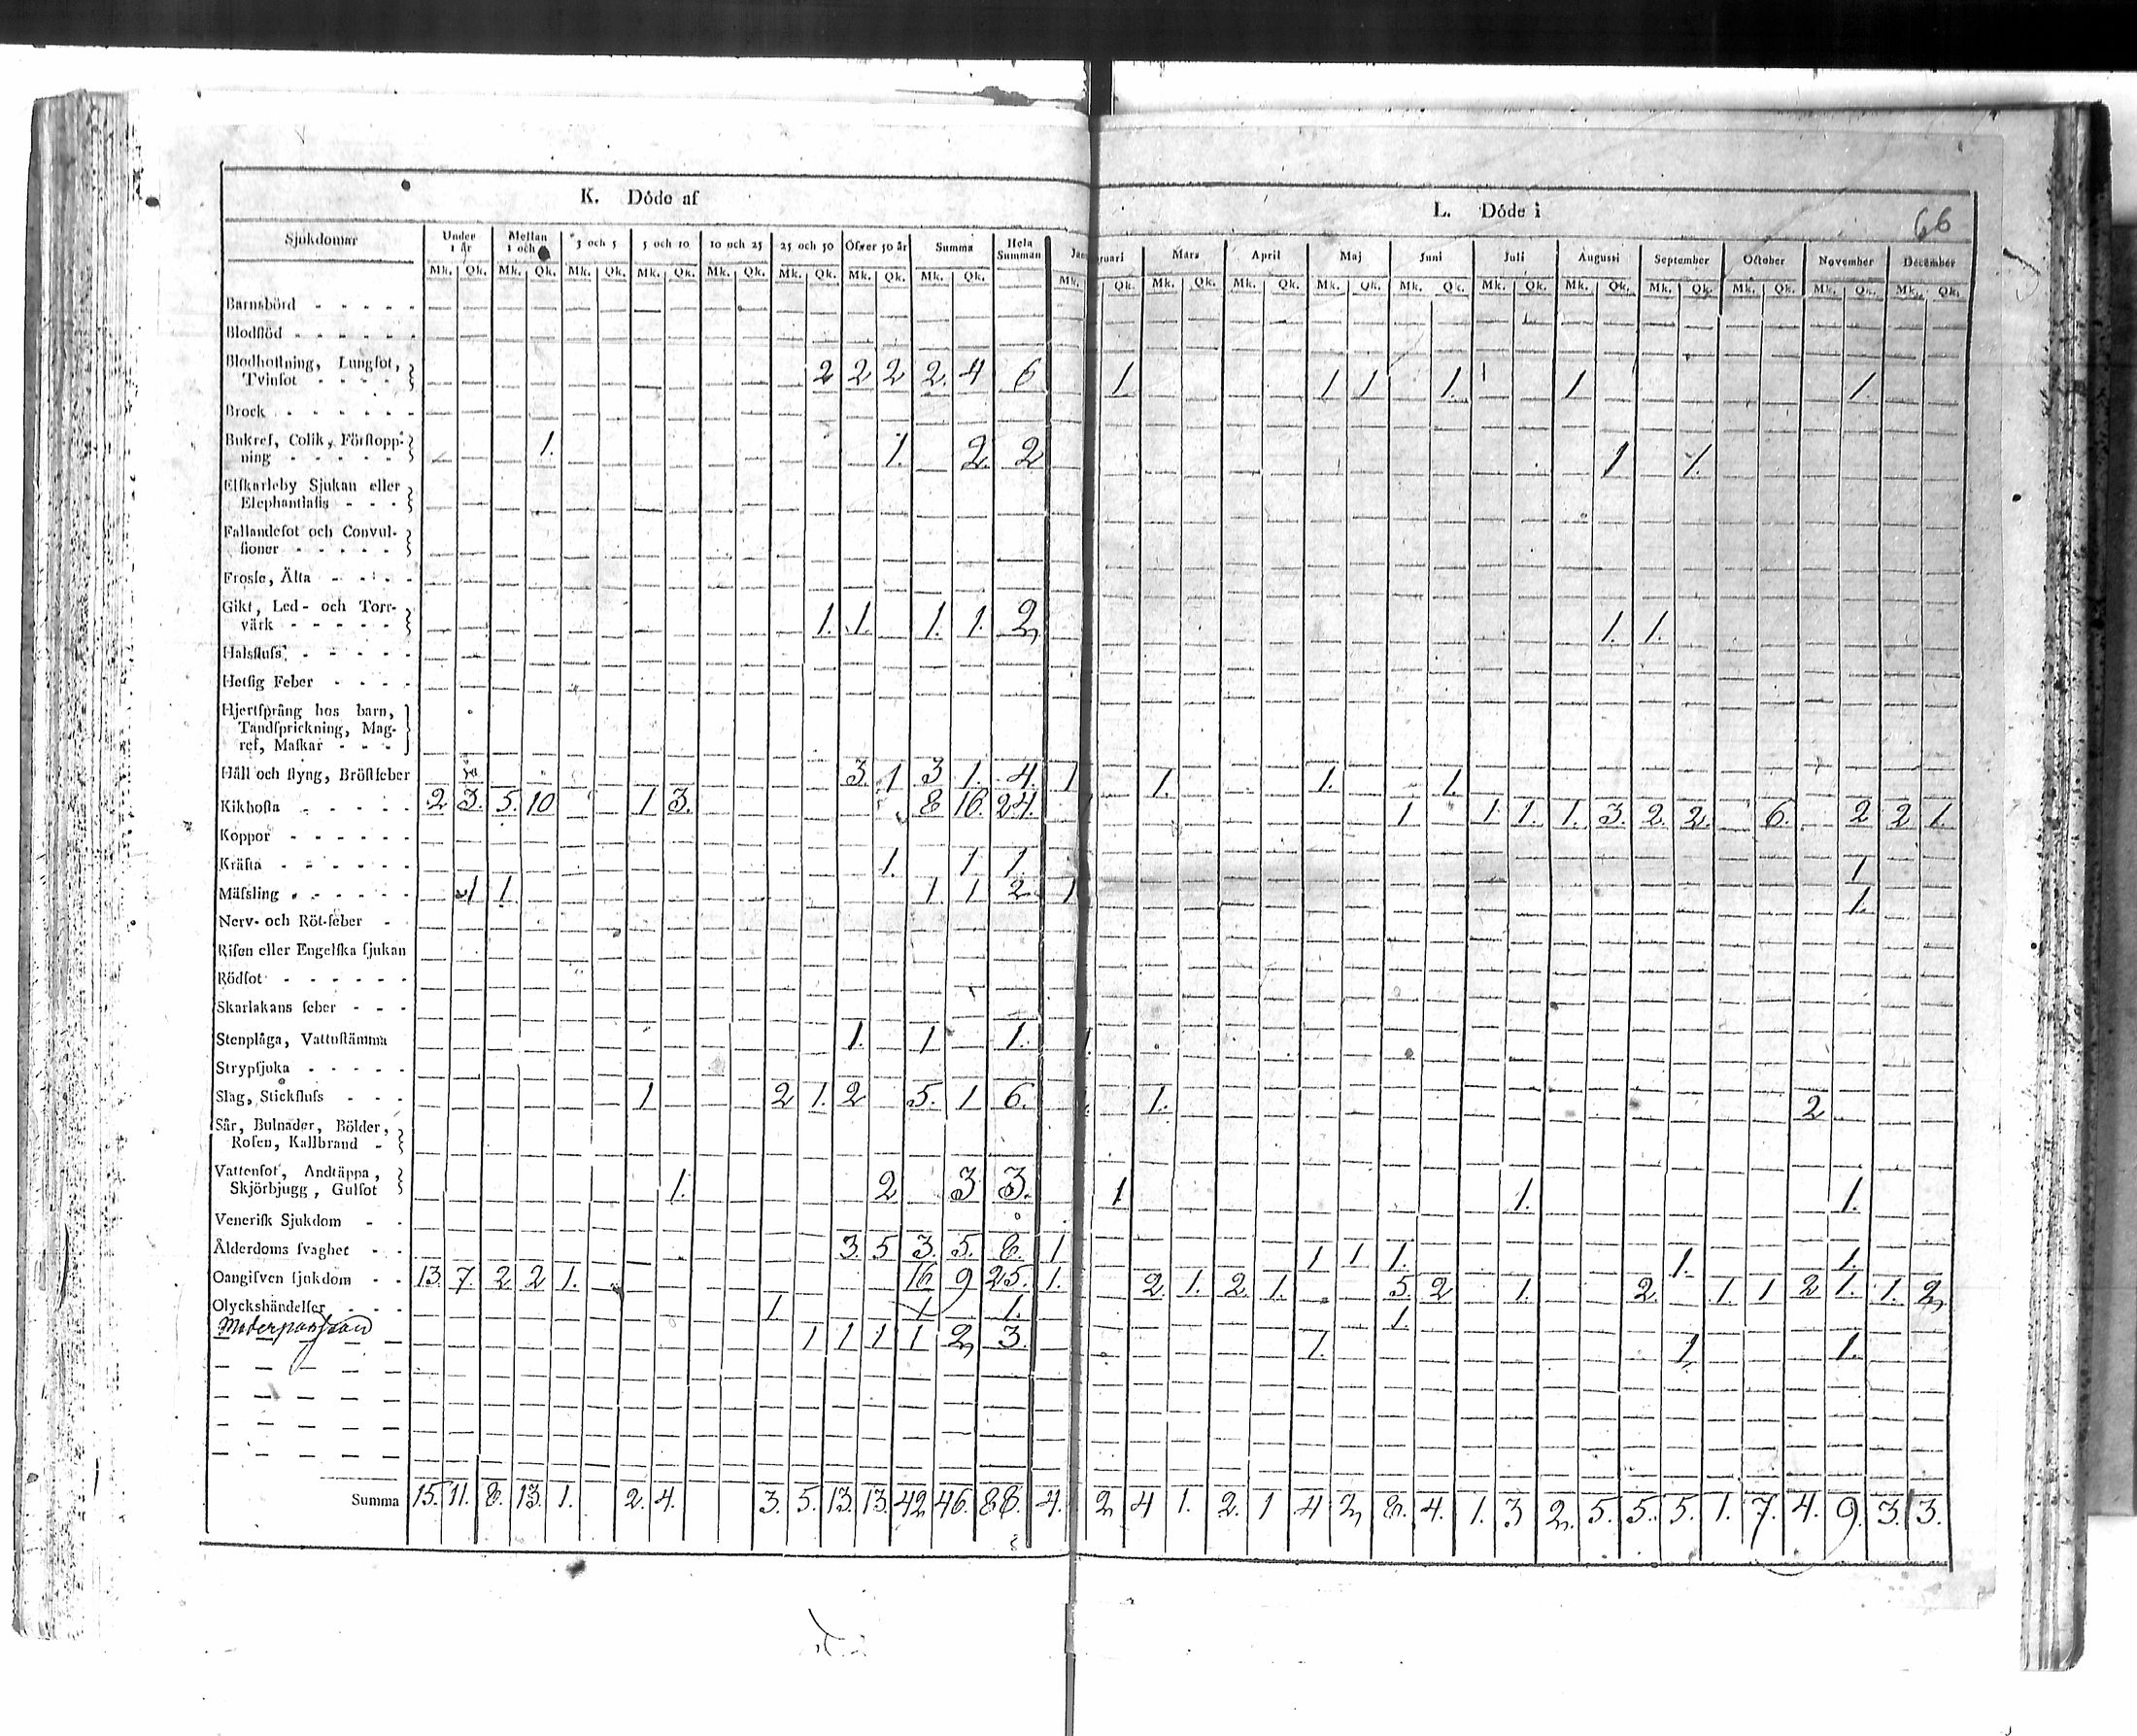 66
K. Döde af
L. Döde i
Sjukdomar Under 1 år Mellan 1 och 3 och 5 5 och 10 10 och 25 25 och 50 Öfver 50 år Summa Hela Summan Jan
uari Mars April Maj Juni Juli Augusti September October November December
Mk. Qk. Mk. Qk. Mk. Qk. Mk. Qk. Mk. Qk. Mk. Qk. Mk. Qk. Mk. Qk. Mk.
Qk. Mk. Qk. Mk. Qk. Mk. Qk. Mk. Qk. Mk. Qk. Mk. Qk. Mk. Qk. Mk. Qk. Mk. Qk. Mk. Qk.
Barnsbörd
Blodflöd
Blodhostning, Lungsot,
Tvinsot 2 2 2 2. 4 6 1 1 1 1. 1 1 1.
Brock
Bukref, Colik, Förstopp-
ning 1. 1. 2. 2 1 1.
Elfkarleby Sjukan eller
Elephantiasis
Fallandesot och Convul-
sioner
Frossa, Älta
Gikt, Led- och Torr-
värk 1. 1. 1. 1. 2 1. 1.
Halsfluss
Hetsig Feber
Hjertsprång hos barn,
Tandsprickning, Mag-
ref, Maskar
Håll och styng, Bröstfeber 3. 1 3 1. 4. 1 1. 1. 1.
Kikhosta 2 3. 5. 10 1 3. 8 16. 24. 1 1. 1. 1. 3. 2. 2. 6. 2 2 1.
Koppor
Kräfta 1. 1 1. 1
Mässling 1 1. 1 1 2. 1 1.
Nerv- och Röt-feber
Risen eller Engelska sjukan
Rödsot
Skarlakans feber
Stenplåga, Vattnstämma 1. 1 1. 1.
Strypsjuka
Slag, Stickfluss 1 2 1. 2 5. 1 6. 1. 1. 2
Sår, Bulnader, Bölder,
Rosen, Kallbrand
Vattensot, Andtäppa,
Skjörbjugg, Gulsot 1. 2 3 3. 1 1. 1.
Venerisk Sjukdom
Ålderdoms svaghet 3. 5 3. 5. 8. 1 1 1 1. 1. 1.
Oangifven sjukdom 13. 7. 2 2 1. 16 9 25. 1. 2. 1. 2. 1. 5. 2 1. 2. 1. 1 2 1. 1. 2
Olyckshändelser 1. 1 1. 1.
1 1 1 1 2 3. 1. 1. 1.
Summa 15. 11. 8. 13. 1. 2. 4. 3. 5. 13. 13. 42 46. 88. 4. 2 4 1. 2. 1 4 2 8. 4. 1. 3 2. 5. 5. 5. 1. 7. 4. 9. 3. 3.